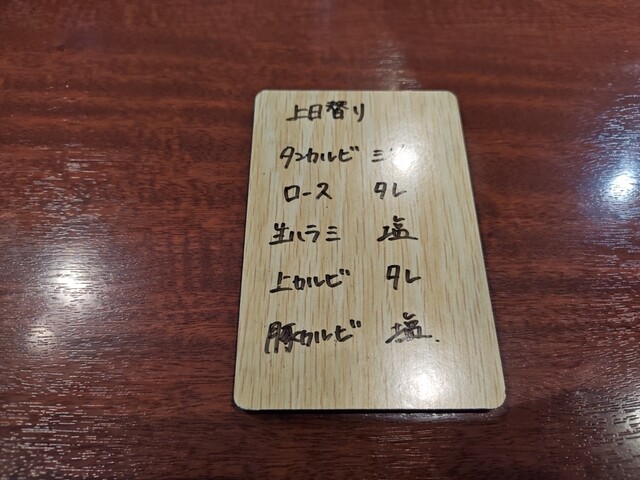 上日替り
タンカルビ ミソ
ロース タレ
生ハラミ 塩
上カルビ タレ
豚カルビ 塩.